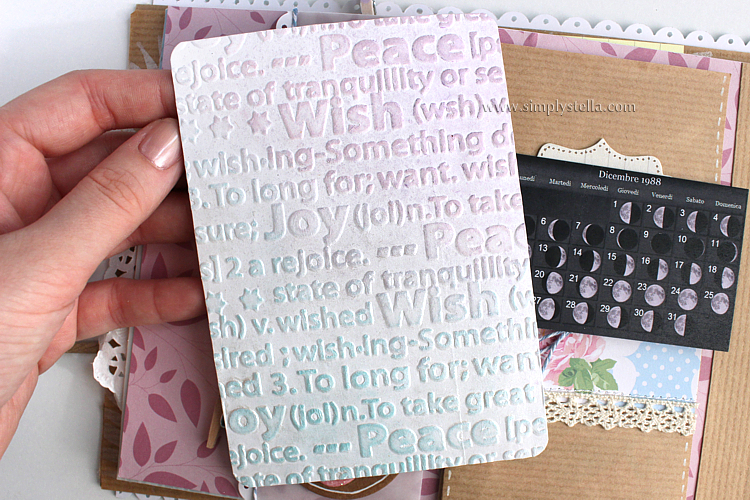 Joy To take great
rejoice. --- Peace [pe
state of tranquility or se
Wish (wsh)
wish·ing-Something d
3. To long for; want, wish
sure; Joy (joi)n.To take
s] 2 a rejoice. --- Peac
state of tranquility
sh) v. wished Wish (w
ired ; wish·ing-Somethin
ed 3. To long for; want
Joy (joi)n.To take great
rejoice. --- Peace [pe
state of tranquility or se
www.simplystella.com
Dicembre 1988
unedì Martedì Mercoledì Giovedì Venerdì Sabato Domenica
1 2 3 4
6 7 8 9 10 11
13 14 15 16 17 18
20 21 22 23 24 25
27 28 29 30 31